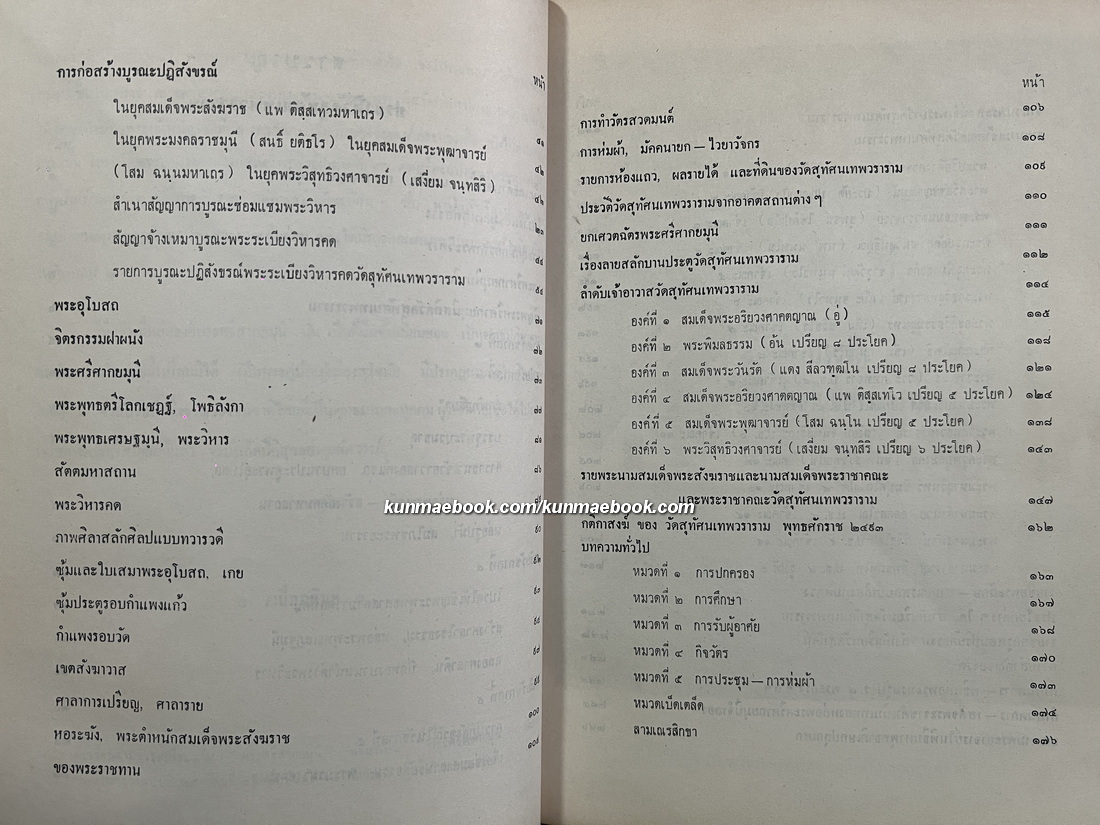 การก่อสร้างบูรณะปฏิสังขรณ์
หน้า
ในยุคสมเด็จพระสังฆราช (แพ ติสฺสเทวมหาเถร)
ในยุคพระมงคลราชมุนี (สนธิ์ ยติธโร) ในยุคสมเด็จพระพุฒาจารย์ ๕๑
(โสม ฉนฺนมหาเถร) ในยุคพระวิสุทธิวงศาจารย์ (เสงี่ยม จนฺทสิริ)
สำเนาสัญญาการบูรณะซ่อมแซมพระวิหาร
สัญญาจ้างเหมาบูรณะพระระเบียงวิหารคด
รายการบูรณะปฏิสังขรณ์พระระเบียงวิหารคดวัดสุทัศนเทพวราราม
พระอุโบสถ
จิตรกรรมฝาผนัง
พระศรีศากยมุนี
พระพุทธตรีโลกเชฏฐ์, โพธิลังกา
พระพุทธเศรษฐมุนี, พระวิหาร
สัตตมหาสถาน
พระวิหารคด
ภาพศิลาสลักศิลปแบบทวารวดี
ซุ้มและใบเสมาพระอุโบสถ, เกย
ซุ้มประตูรอบกำแพงแก้ว
กำแพงรอบวัด
เขตสังฆาวาส
ศาลาการเปรียญ, ศาลาราย
๑๐๐
หอระฆัง, พระตำหนักสมเด็จพระสังฆราช
ของพระราชทาน
หน้า
การทำวัตรสวดมนต์ ๑๐๖
การห่มผ้า, มัคคนายก — ไวยาวัจกร ๑๐๘
รายการห้องแถว, ผลรายได้ และที่ดินของวัดสุทัศนเทพวราราม ๑๐๙
ประวัติวัดสุทัศนเทพวรารามจากอาคตสถานต่าง ๆ ๑๑๐
ยกเศวตฉัตรพระศรีศากยมุนี ๑๑๑
เรื่องลายสลักบานประตูวัดสุทัศนเทพวราราม ๑๑๒
ลำดับเจ้าอาวาสวัดสุทัศนเทพวราราม ๑๑๔
องค์ที่ ๑ สมเด็จพระอริยวงศาคตญาณ (อู่) ๑๑๕
องค์ที่ ๒ พระพิมลธรรม (อ้น เปรียญ ๘ ประโยค) ๑๑๘
องค์ที่ ๓ สมเด็จพระวันรัต (แดง สีลวฑฺฒโน เปรียญ ๘ ประโยค) ๑๒๑
องค์ที่ ๔ สมเด็จพระอริยวงศาคตญาณ (แพ ติสฺสเทโว เปรียญ ๕ ประโยค) ๑๒๔
องค์ที่ ๕ สมเด็จพระพุฒาจารย์ (โสม ฉนฺโน เปรียญ ๕ ประโยค) ๑๓๘
องค์ที่ ๖ พระวิสุทธิวงศาจารย์ (เสงี่ยม จนฺทสิริ เปรียญ ๖ ประโยค) ๑๔๓
รายพระนามสมเด็จพระสังฆราชและนามสมเด็จพระราชาคณะ
และพระราชาคณะวัดสุทัศนเทพวราราม ๑๔๗
kunmaebook.com/kunmaebook.com
กติกาสงฆ์ ของ วัดสุทัศนเทพวราราม พุทธศักราช ๒๔๙๓ ๑๖๒
บทความทั่วไป
หมวดที่ ๑ การปกครอง ๑๖๓
หมวดที่ ๒ การศึกษา ๑๖๗
หมวดที่ ๓ การรับผู้อาศัย ๑๖๘
หมวดที่ ๔ กิจวัตร ๑๗๐
หมวดที่ ๕ การประชุม — การห่มผ้า ๑๗๓
หมวดเบ็ดเตล็ด ๑๗๔
สามเณรสิกขา ๑๗๖